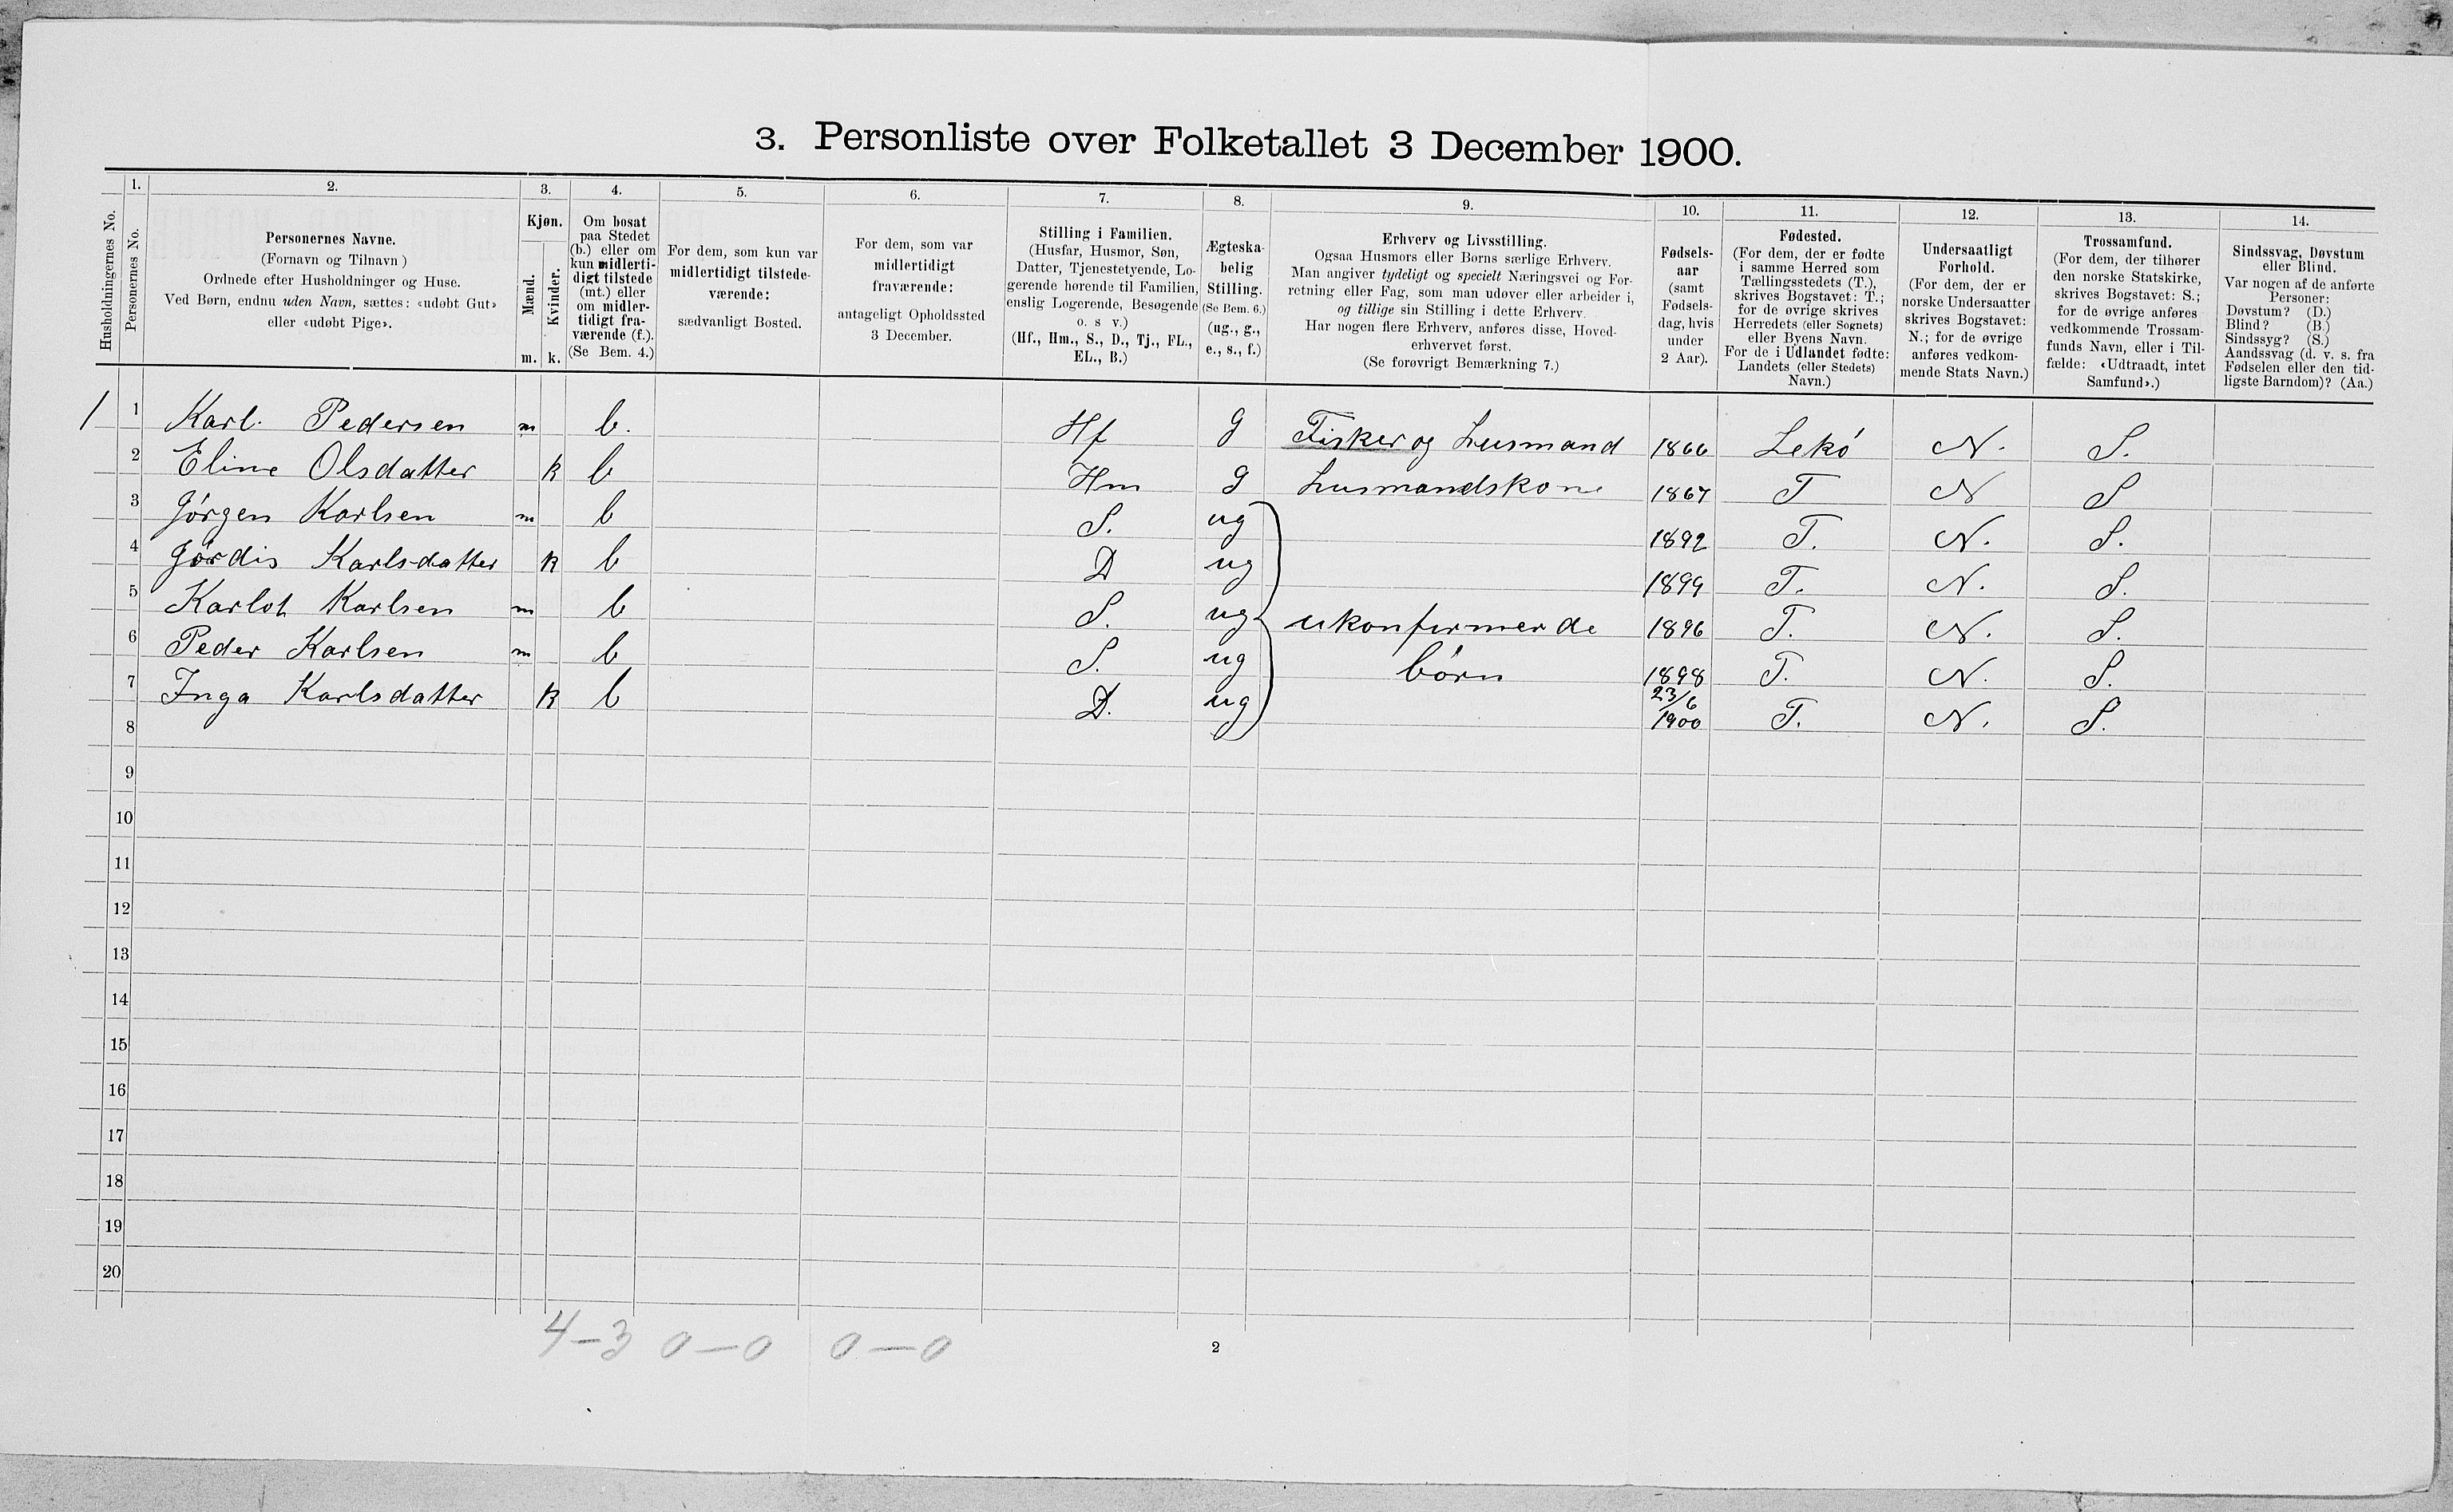 3. Personliste over Folketallet 3 December 1900.
1. 2. 3. 4. 5. 6. 7. 8. 9. 10. 11. 12. 13. 14.
Husholdningernes No.
Personernes No.
Personernes Navne.
(Fornavn og Tilnavn)
Ordnede efter Husholdninger og Huse.
Ved Børn, endnu uden Navn, sættes: «udøbt Gut»
eller «udøbt Pige».
Kjøn.
Mænd.
Kvinder.
m. k.
Om bosat
paa Stedet
(b.) eller om
kun midlerti-
digt tilstede
(mt.) eller
om midler-
tidigt fra-
værende (f.).
(Se Bem. 4.)
For dem, som kun var
midlertidigt tilstede-
værende:
sædvanligt Bosted.
For dem, som var
midlertidigt
fraværende:
antageligt Opholdssted
3 December.
Stilling i Familien.
(Husfar, Husmor, Søn,
Datter, Tjenestetyende, Lo-
gerende hørende til Familien,
enslig Logerende, Besøgende
o. s v.)
(Hf., Hm., S., D., Tj., FL.,
EL., B.)
Ægteska-
belig
Stilling.
(Se Bem. 6.)
(ug., g.,
e., s., f.)
Erhverv og Livsstilling.
Ogsaa Husmors eller Børns særlige Erhverv.
Man angiver tydeligt og specielt Næringsvei og For-
retning eller Fag, som man udøver eller arbeider i,
og tillige sin Stilling i dette Erhverv.
Har nogen flere Erhverv, anføres disse, Hoved-
erhvervet først.
(Se forøvrigt Bemærkning 7.)
Fødsels-
aar
(samt
Fødsels-
dag, hvis
under
2 Aar).
Fødested.
(For dem, der er fødte
i samme Herred som
Tællingsstedets (T.),
skrives Bogstavet: T.;
for de øvrige skrives
Herredets (eller Sognets)
eller Byens Navn.
For de i Udlandet fødte:
Landets (eller Stedets)
Navn.)
Undersaatligt
Forhold.
(For dem, der er
norske Undersaatter
skrives Bogstavet:
N.; for de øvrige
anføres vedkom-
mende Stats Navn.)
Trossamfund.
(For dem, der tilhører
den norske Statskirke,
skrives Bogstavet: S.;
for de øvrige anføres
vedkommende Trossam-
funds Navn, eller i Til-
fælde: «Udtraadt, intet
Samfund».)
Sindssvag, Døvstum
eller Blind.
Var nogen af de anførte
Personer:
Døvstum? (D.)
Blind? (B.)
Sindssyg? (S.)
Aandssvag (d. v. s. fra
Fødselen eller den tid-
ligste Barndom)? (Aa.)
1 1 Karl. Pedersen m b. Hf g Fisker og Husmand 1866 Lekø N. S.
2 Eline Olsdatter k b Hm g Husmandskone 1867 T N S
3 Jørgen Karlsen m b S. ug 1892 T. N. S.
4 Jørdis Karlsdatter k b D ug 1894 T. N. S.
5 Karlot Karlsen m b S. ug ukonfirmerde 1896 T. N. S.
6 Peder Karlsen m b S. ug børn 1898 T. N. S.
7 Inga Karlsdatter k b D. ug 23/6 1900 T. N. S.
8
9
10
11
12
13
14
15
16
17
18
19
20
4-3 0-0 0-0
2